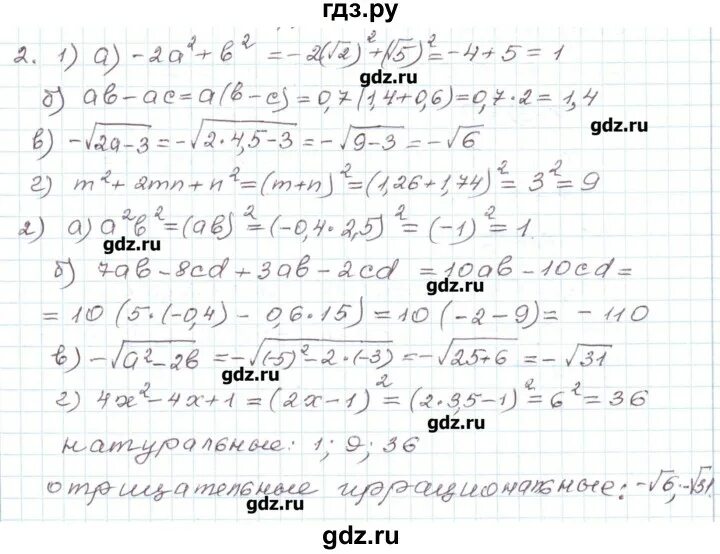 гдз.ру
2. 1) а) -2a² + b² = -2(√2)² + (√5)² = -4 + 5 = 1
gdz.ru
б) ab - ac = a(b - c) = 0,7(1,4 + 0,6) = 0,7 · 2 = 1,4
gdz.ru
в) -√2a - 3 = -√2 · 4,5 - 3 = -√9 - 3 = -√6
г) m² + 2mn + n² = (m + n)² = (1,26 + 1,74)² = 3² = 9
2) а) a²b² = (ab)² = (-0,4 · 2,5)² = (-1)² = 1.
gdz.ru
gdz.ru
б) 7ab - 8cd + 3ab - 2cd = 10ab - 10cd =
gdz.ru
= 10 (5 · (-0,4) - 0,6 · 15) = 10 (-2 - 9) = -110
в) -√a² - 2b = -√(-5)² - 2 · (-3) = -√25 + 6 = -√31
gdz.ru
г) 4x² - 4x + 1 = (2x - 1)² = (2 · 3,5 - 1)² = 6² = 36
gdz.ru
натуральные: 1; 9; 36
отрицательные иррациональные: -√6; -√31.
gdz.ru
gdz.ru